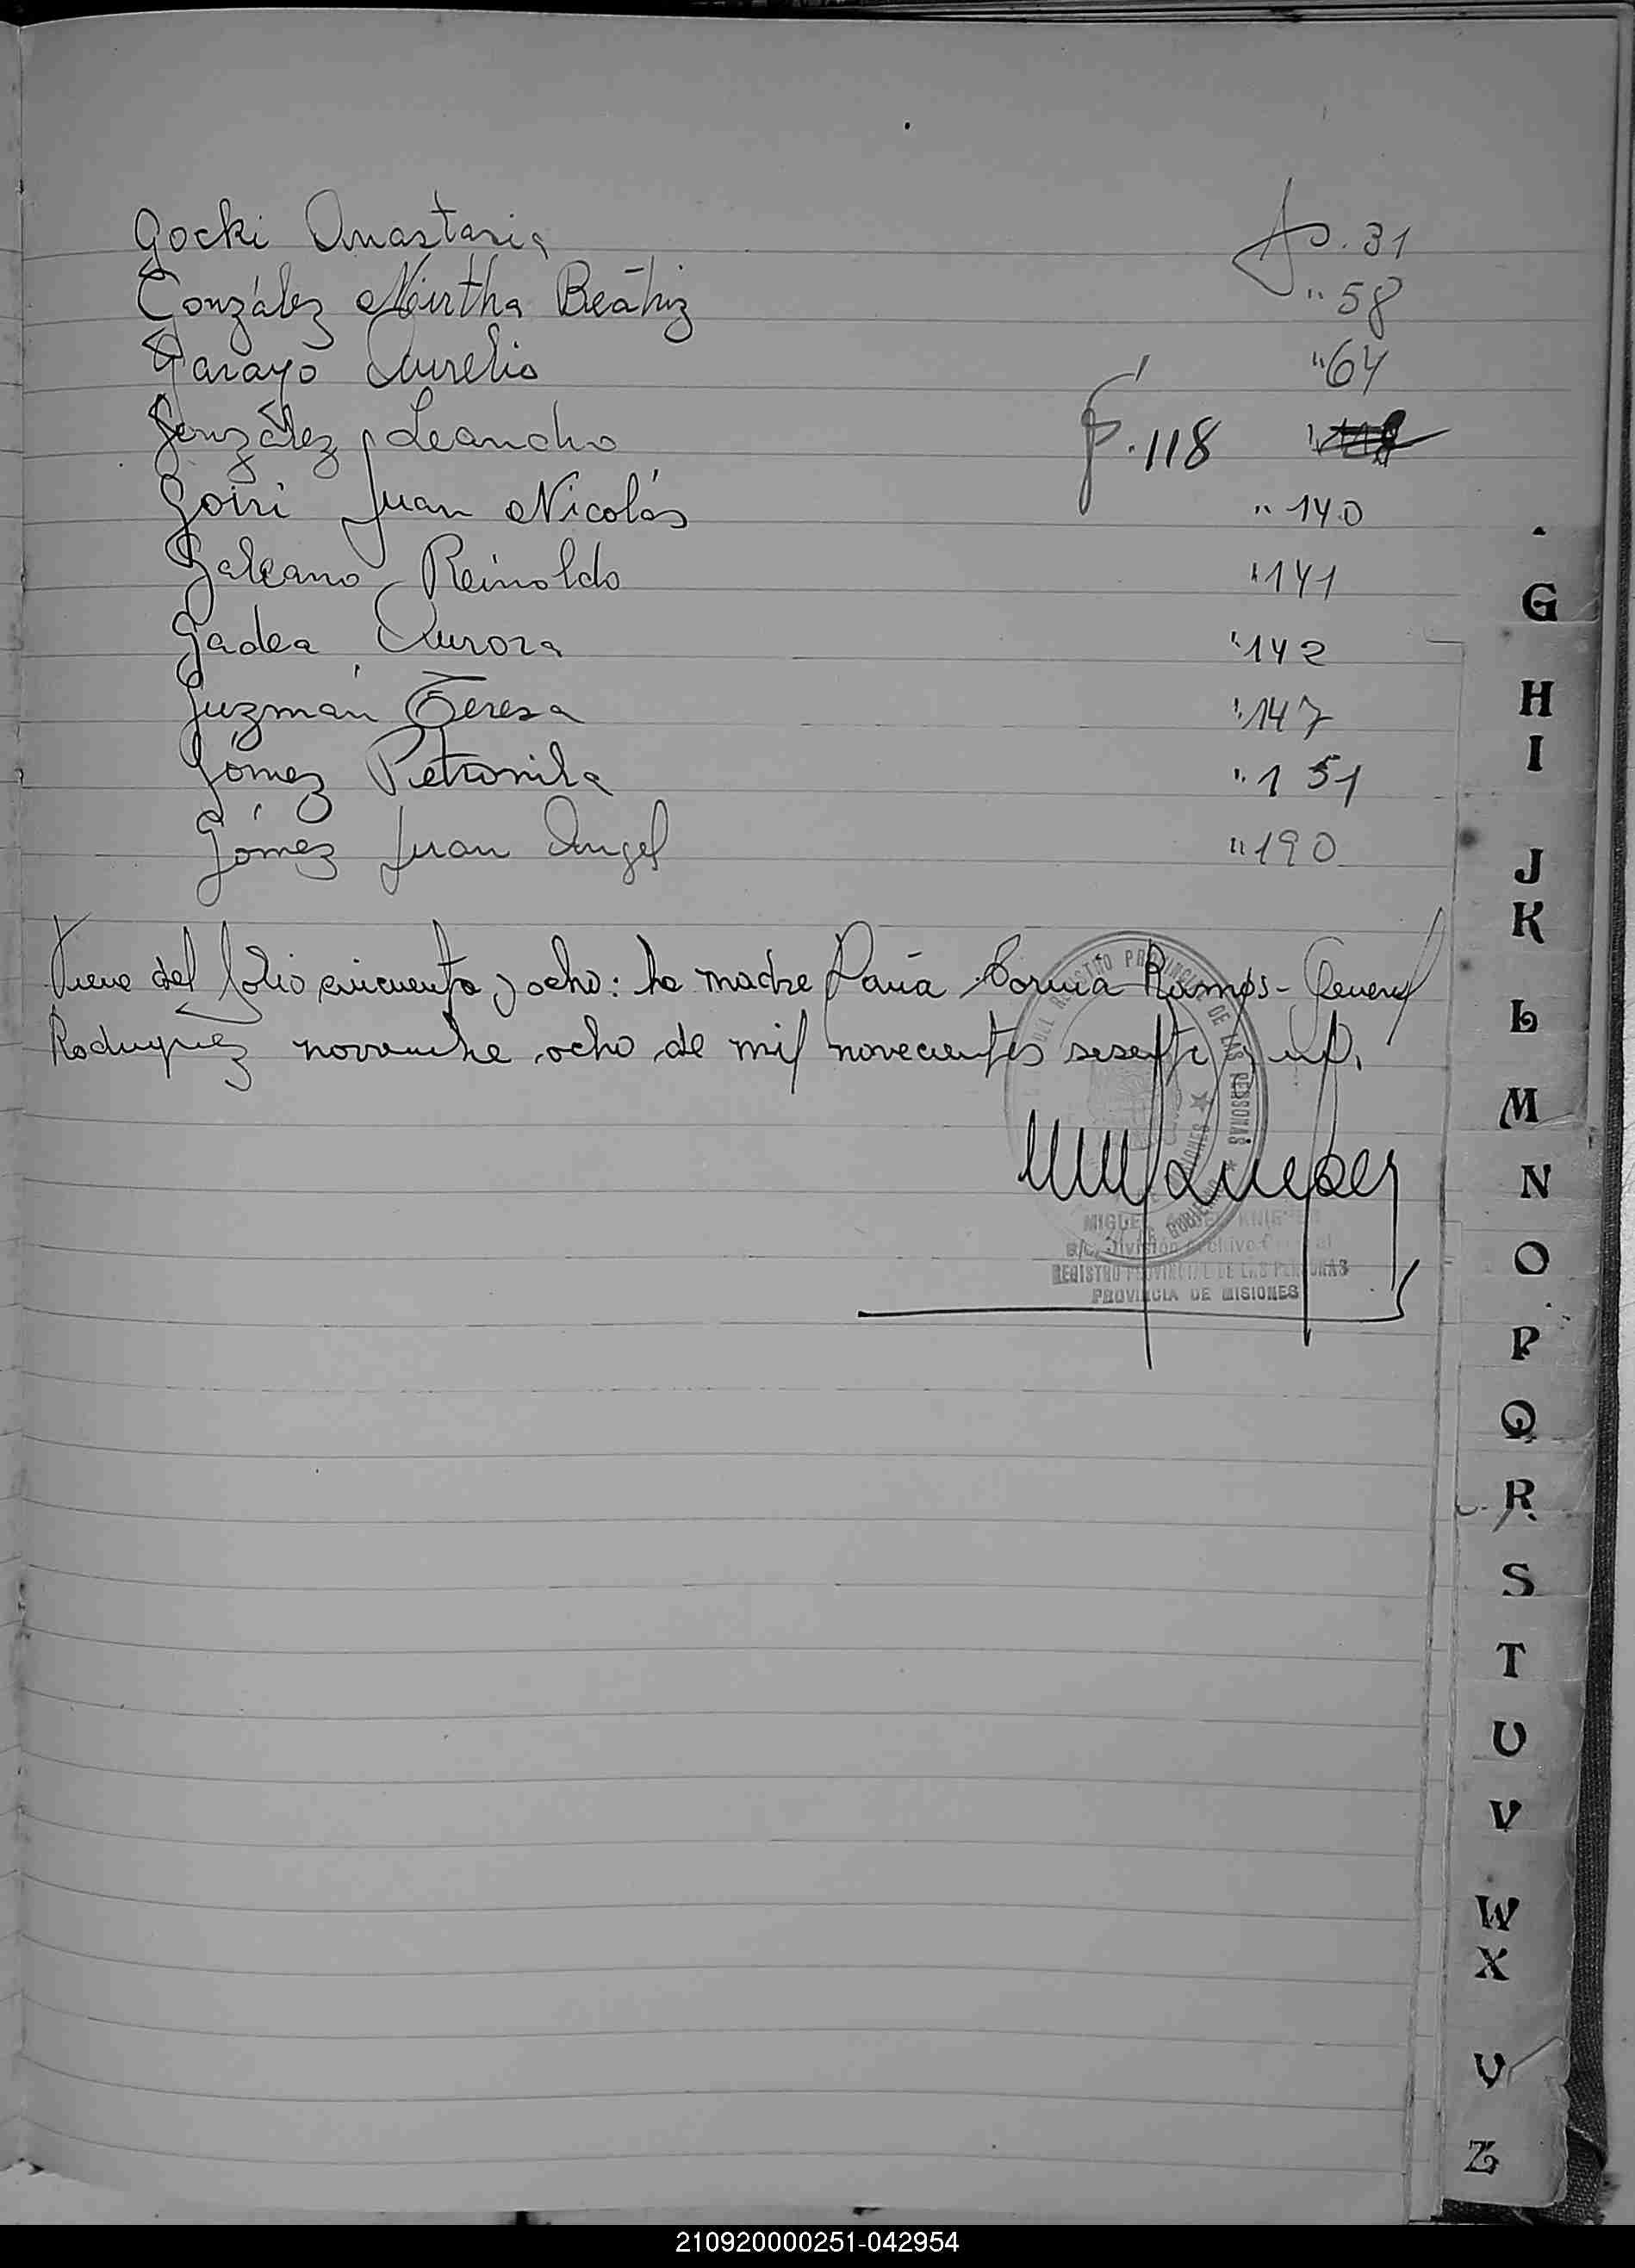 Gocki Anastasia fo. 31
González Mirtha Beátriz " 58
Garayo Aurelio " 64
González Leandro f. 118
Goiri Juan Nicolás " 140
Galeano Reinoldo " 141
Gadea Aurora " 142
Guzmán Teresa " 147
Gómez Petronila " 151
Gómez Juan Angel " 190
Viene del folio cincuenta y ocho: la madre María Ramos- General
Rodríguez noviembre ocho de mil novecientos sesenta y
REGISTRO PROVINCIAL DE LAS PERSONAS
MIGUEL
División Archivo
REGISTRO PROVINCIAL DE LAS PERSONAS
PROVINCIA DE MISIONES
G
H
I
J
K
L
M
N
O
P
Q
R
S
T
U
V
W
X
Y
Z
210920000251-042954